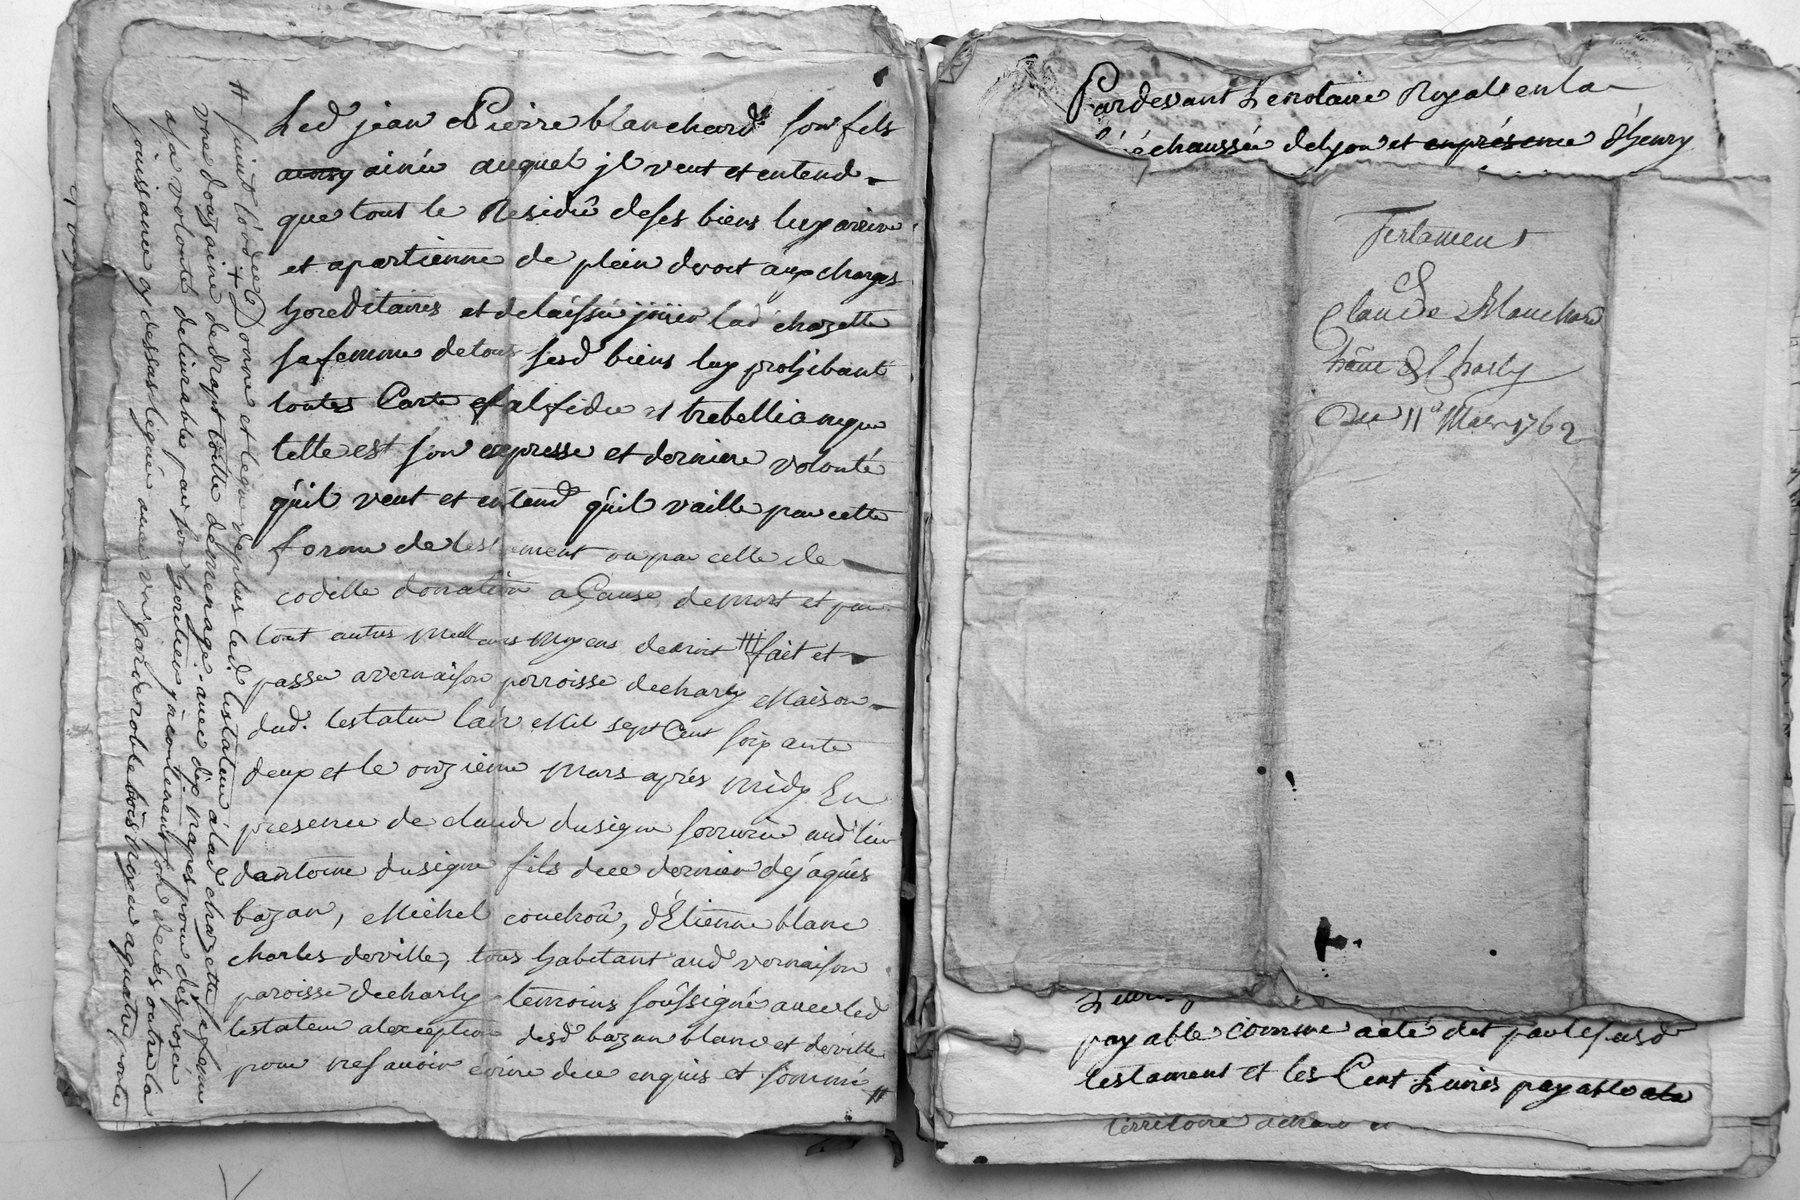 Led jean Pierre blanchard son fils
aussy ainée auquel jl veut et entend
que tout le Residû de ses biens luy arrive
et apartienne de plein droit aux charges
hereditaires et delaissée joüier lad chazette
sa femme de tous sesd biens luy prohibant
toutes Carte falsidie et trebellianique
telle est son expresse et derniere volonté
qu'il veut et entend qu'il vaille par cette
forme de testament ou par celle de
codille donation a Cause de mort et par
tout autres meilleurs moyens de droit # fait et
passé a vernaison parroisse de charly Maison
dud. testateur lan Mil sept Cent soixante
deux et le onzieme Mars aprés midy En
presence de claude dusigne serrurier aud lieu
dantoine dusigne fils de ce dernier de jâques
bazan, Michel couchoû, d'Étienne blanc
charles deville, tous habitant aud vernaison
paroisse de charly temoins soussigné avec led
testateur a lexception desd bazan blanc et deville
pour ne savoir écrire de ce enquis et sommé #
Donne et legue de plus led. testateur a lad chazette sa femme
une douzaine de drapt toille de menage avec dix napes pour desposée
a sa volonté delivrable par son heritier jncontinent son deces outre la
jouissance cy dessus leguée avec un garderobbe bois noyer a quatre porte
Pardevant Le notaire Royal en la
échaussée de lyon et en présence d'henry
Testament
de
Claude Blanchard
de Charly
Du 11e Mars 1762
payable comme a été dit par le susd
testament et les Cent Livres payable a la
territoire de